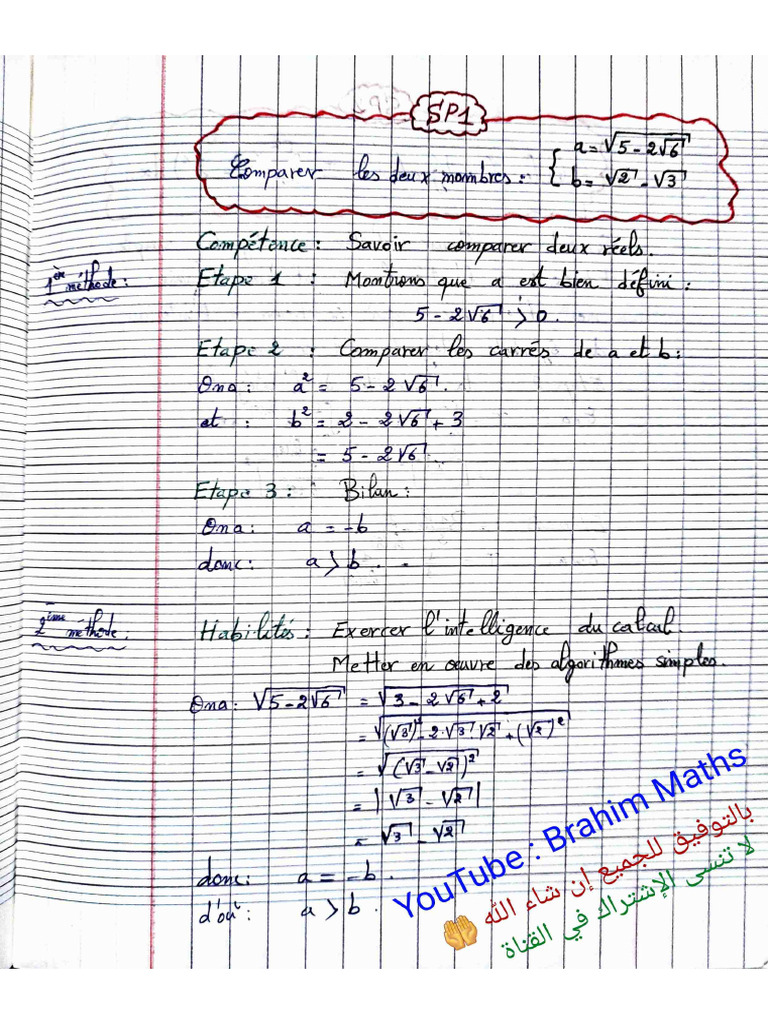 SP1
Comparer les deux nombres : { a = √(5 - 2√6)
b = √2 - √3
Compétence : Savoir comparer deux réels.
1ère méthode : Etape 1 : Montrons que a est bien défini :
5 - 2√6 > 0.
Etape 2 : Comparer les carrés de a et b :
Ona : a² = 5 - 2√6.
et : b² = 2 - 2√6 + 3
= 5 - 2√6.
Etape 3 : Bilan :
Ona : a = -b
donc : a > b.
2ème méthode : Habilités : Exercer l'intelligence du calcul.
Metter en œuvre des algorithmes simples.
Ona : √(5 - 2√6) = √(3 - 2√6 + 2)
= √((√3)² - 2·√3 √2 + (√2)²)
= √((√3 - √2)²)
= |√3 - √2|
= √3 - √2
donc : a = -b.
d'où : a > b.
YouTube : Brahim Maths
بالتوفيق للجميع إن شاء الله 🤲
لا تنسى الإشتراك في القناة